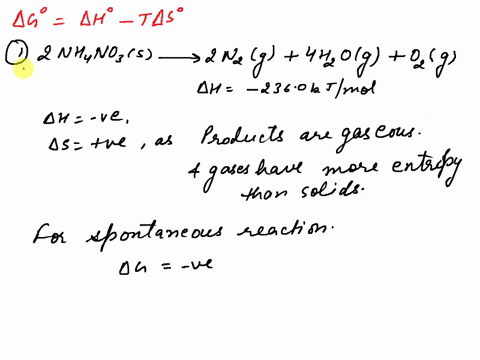 ΔG° = ΔH° − TΔS°
① 2NH₄NO₃(s) ⟶ 2N₂(g) + 4H₂O(g) + O₂(g)
ΔH = −236.0 kJ/mol
ΔH = -ve,
ΔS = +ve, as Products are gaseous.
& gases have more entropy
than solids.
For spontaneous reaction.
ΔG = -ve